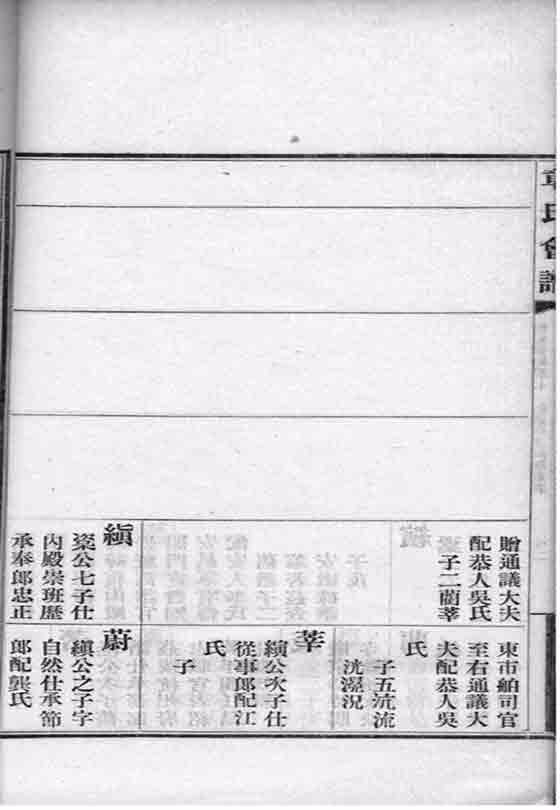 章氏會譜
贈通議大夫
配恭人吳氏
子二蘭莘
縝
粢公七子仕
內殿崇班歷
承奉郎忠正
東市舶司官
至右通議大
夫配恭人吳
氏
子五沆流
洸濕況
莘
績公次子仕
從事郎配江
氏
子
蔚
縝公之子字
自然仕承節
郎配龔氏